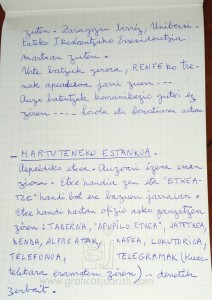 zuten. Zaragozan berriz, Unibersi-
tateko Ikasentzako Erresidentzia
martxan zuten.
Urte batzuk geroza, RENFEko tre-
nak apeaderoa jarri zuen ---
Auzo batentzat komunikazio gutxi ez
ziren ----
- MARTUTENEKO ESTANKOA -
Aspaldiko etxea. Auzoari izena eman
ziona. Etxe handia zen eta "ETXEA-
TZE" handi bat ere bazuen jarraian.
Etxe handi hartan ofizio asko gauzatzen
ziren: TABERNA, "APUPILO ETXEA", JATETXEA,
DENDA, ALPREATAK, KAFEA, LOKUTORIOA,
TELEFONOA, TELEGRAMAK (Kuar-
teletara eramaten ziren) -- denetik
zerbait.
www.graficasjuaristi.com